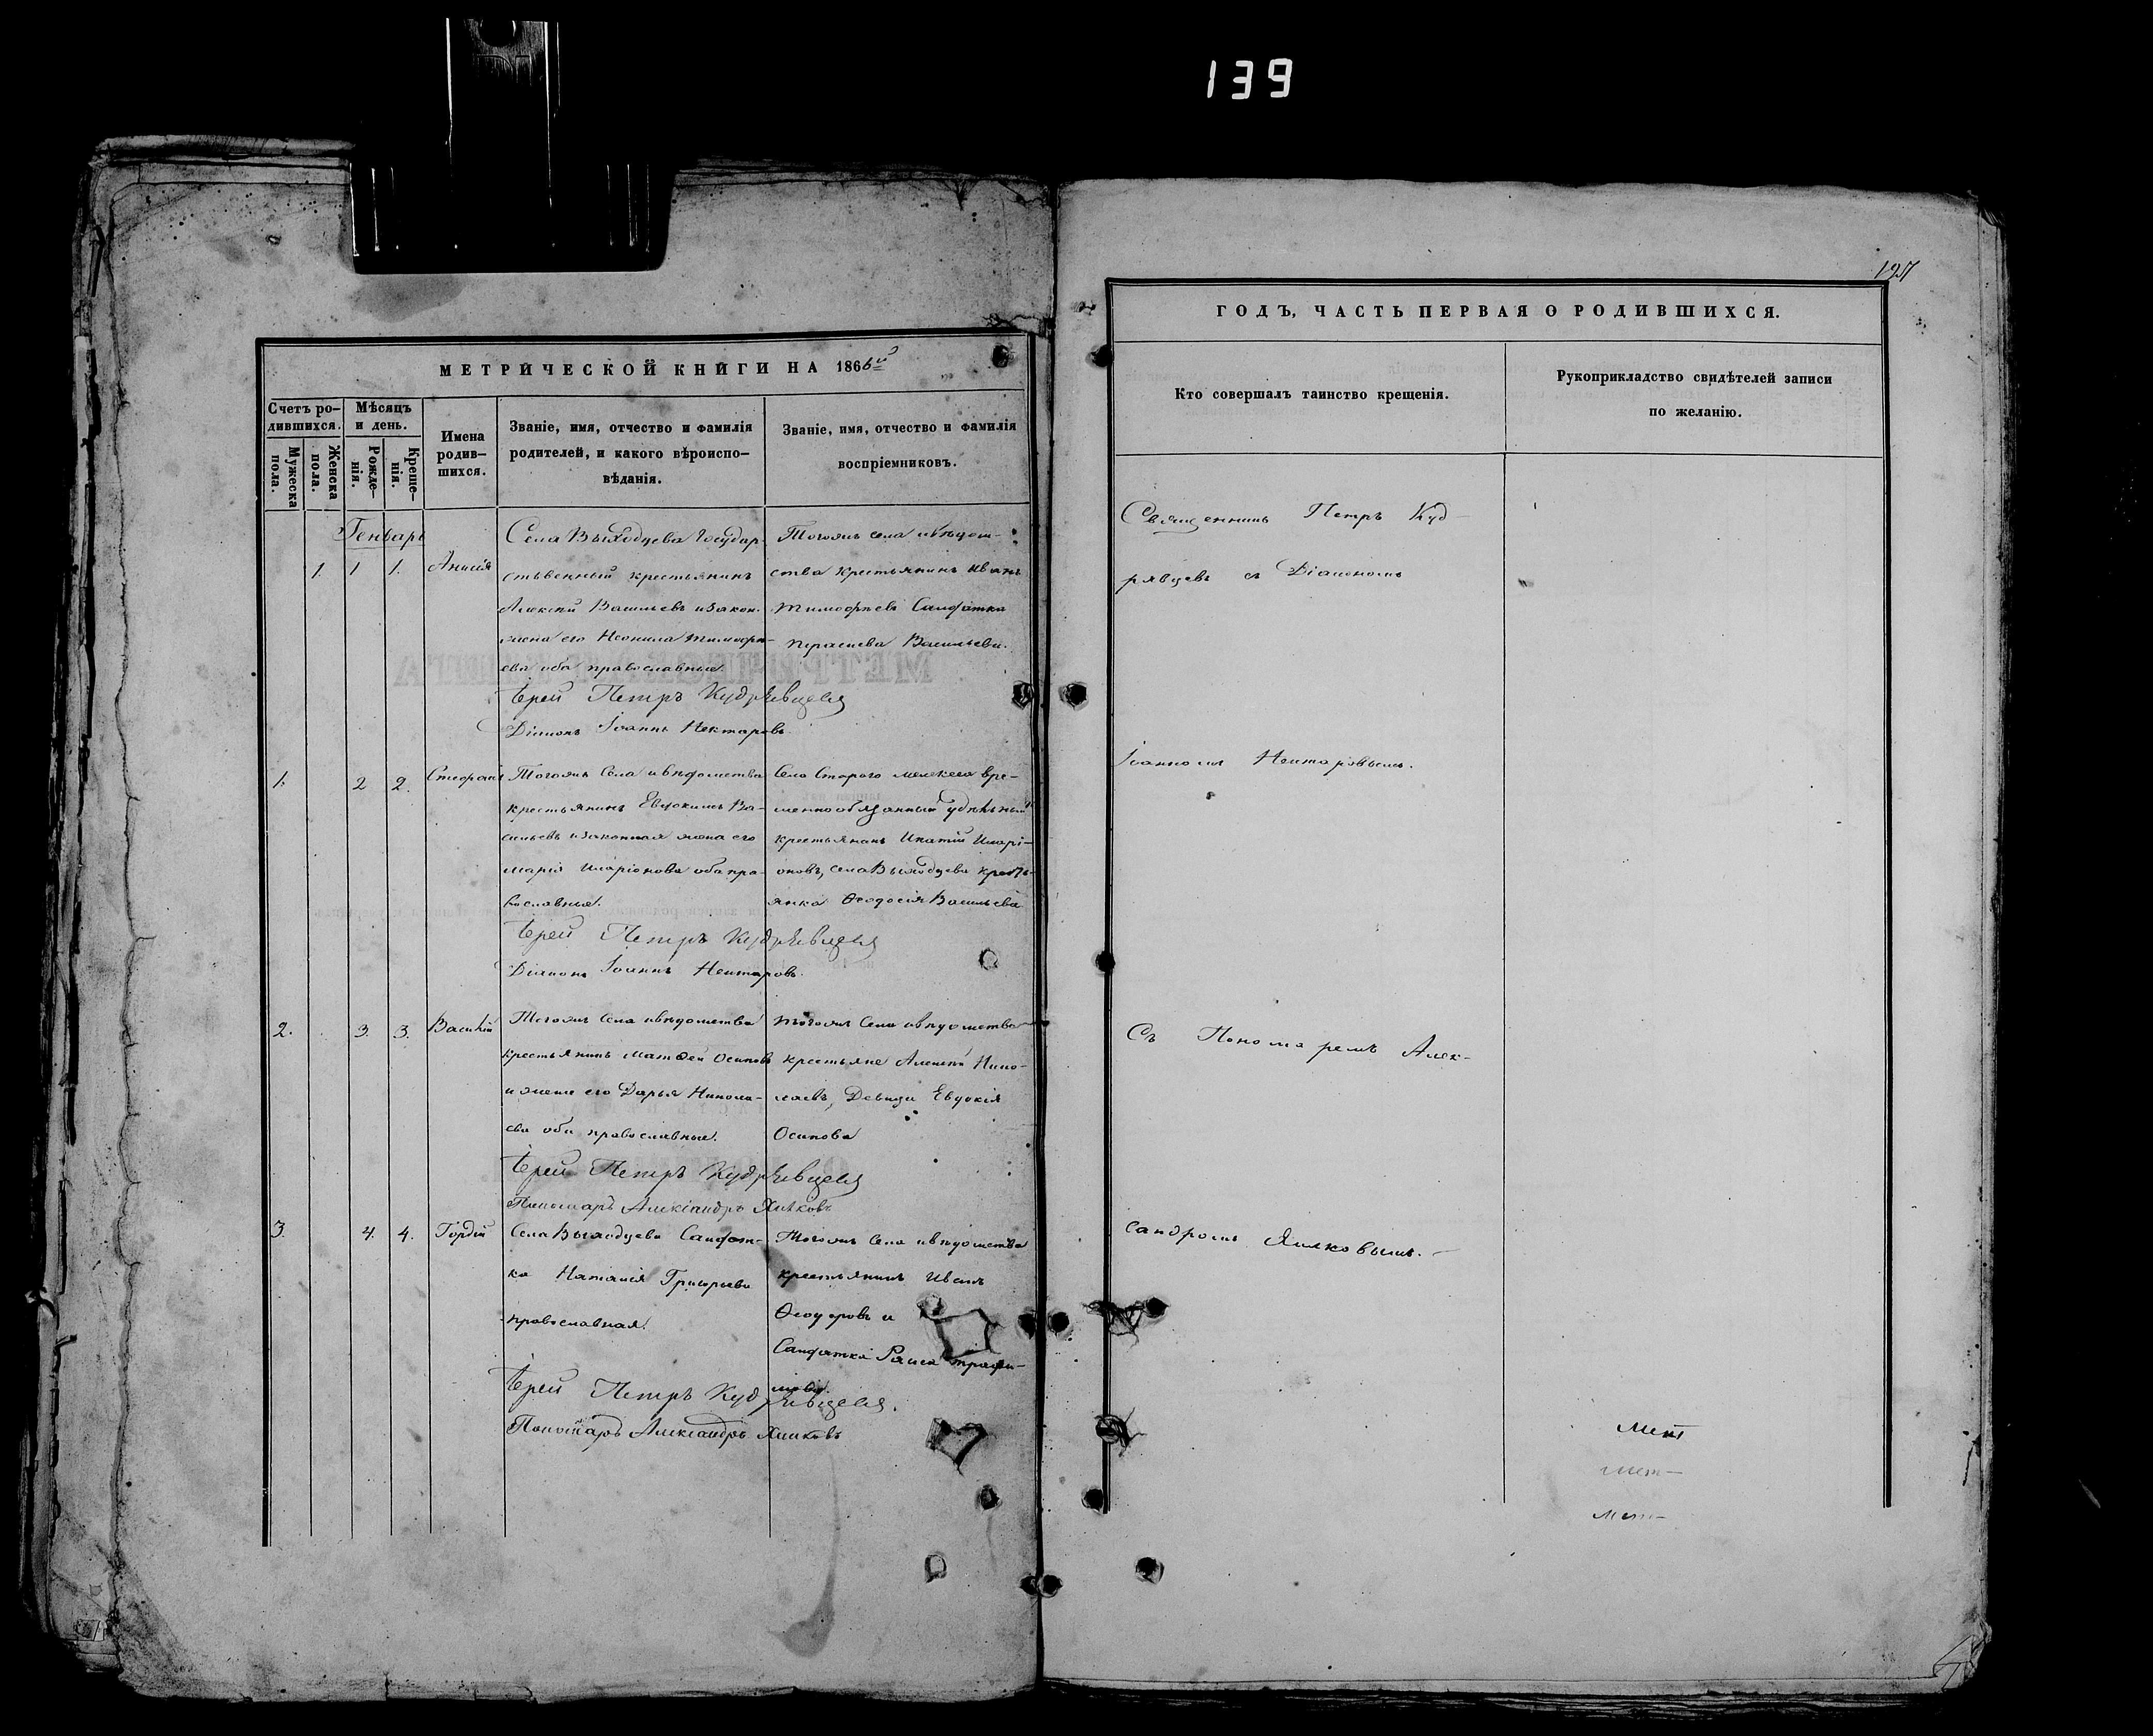 139
МЕТРИЧЕСКОЙ КНИГИ НА 1866й
Счетъ ро-
дившихся.
Мужеска пола.
Женска пола.
Мѣсяцъ
и день.
Рожде-
нія.
Креще-
нія.
Имена
родив-
шихся.
Званіе, имя, отчество и фамилія
родителей, и какого вѣроиспо-
вѣданія.
Званіе, имя, отчество и фамилія
воспріемниковъ.
Генварь
1. 1 1. Анисія
Села Выходцева Государ-
ственный крестьянинъ
Алексѣй Васильевъ и закон.
жена его Неонила Тимофѣ-
ева оба православные.
Іерей Петръ Кудрявцевъ
Діаконъ Іоаннъ Нектаровъ
Тогожъ села и вѣдом-
ства крестьянинъ Иванъ
Тимофѣевъ Салдатка
Васильева.
1. 2 2. Стефанъ
Тогожъ Села и вѣдомства
крестьянинъ Евдокимъ Ва-
сильевъ и законная жена его
Марія Иларіонова оба пра-
вославные.
Іерей Петръ Кудрявцевъ
Діаконъ Іоаннъ Нектаровъ.
Села Старого вре-
менно обязанный удѣльный
крестьянинъ Ипатій Иларі-
оновъ, села Выходцева кресть-
янка Ѳеодосія Васильева
2. 3. 3. Василій
Тогожъ Села и вѣдомства
крестьянинъ Матѳей Осиповъ
и жена его Дарья Никола-
ева оба православные.
Іерей Петръ Кудрявцевъ
Пономарь Александръ
Тогожъ Села и вѣдомства
крестьяне Алексѣй Нико-
лаевъ, Девица Евдокія
Осипова
3. 4. 4. Гордій
Села Выходцева Салдат-
ка Наталія Григорьева
православная.
Іерей Петръ Кудрявцевъ.
Пономарь Александръ
Тогожъ Села и вѣдомства
крестьянинъ Иванъ
Ѳеодоровъ и
Салдатка Раиса Трофи-
мова.
ГОДЪ, ЧАСТЬ ПЕРВАЯ О РОДИВШИХСЯ.
Кто совершалъ таинство крещенія.
Рукоприкладство свидѣтелей записи
по желанію.
Священникъ Петръ Куд-
рявцевъ съ Діакономъ
Іоанномъ Нектаровымъ.
Съ Пономаремъ Алек-
сандромъ